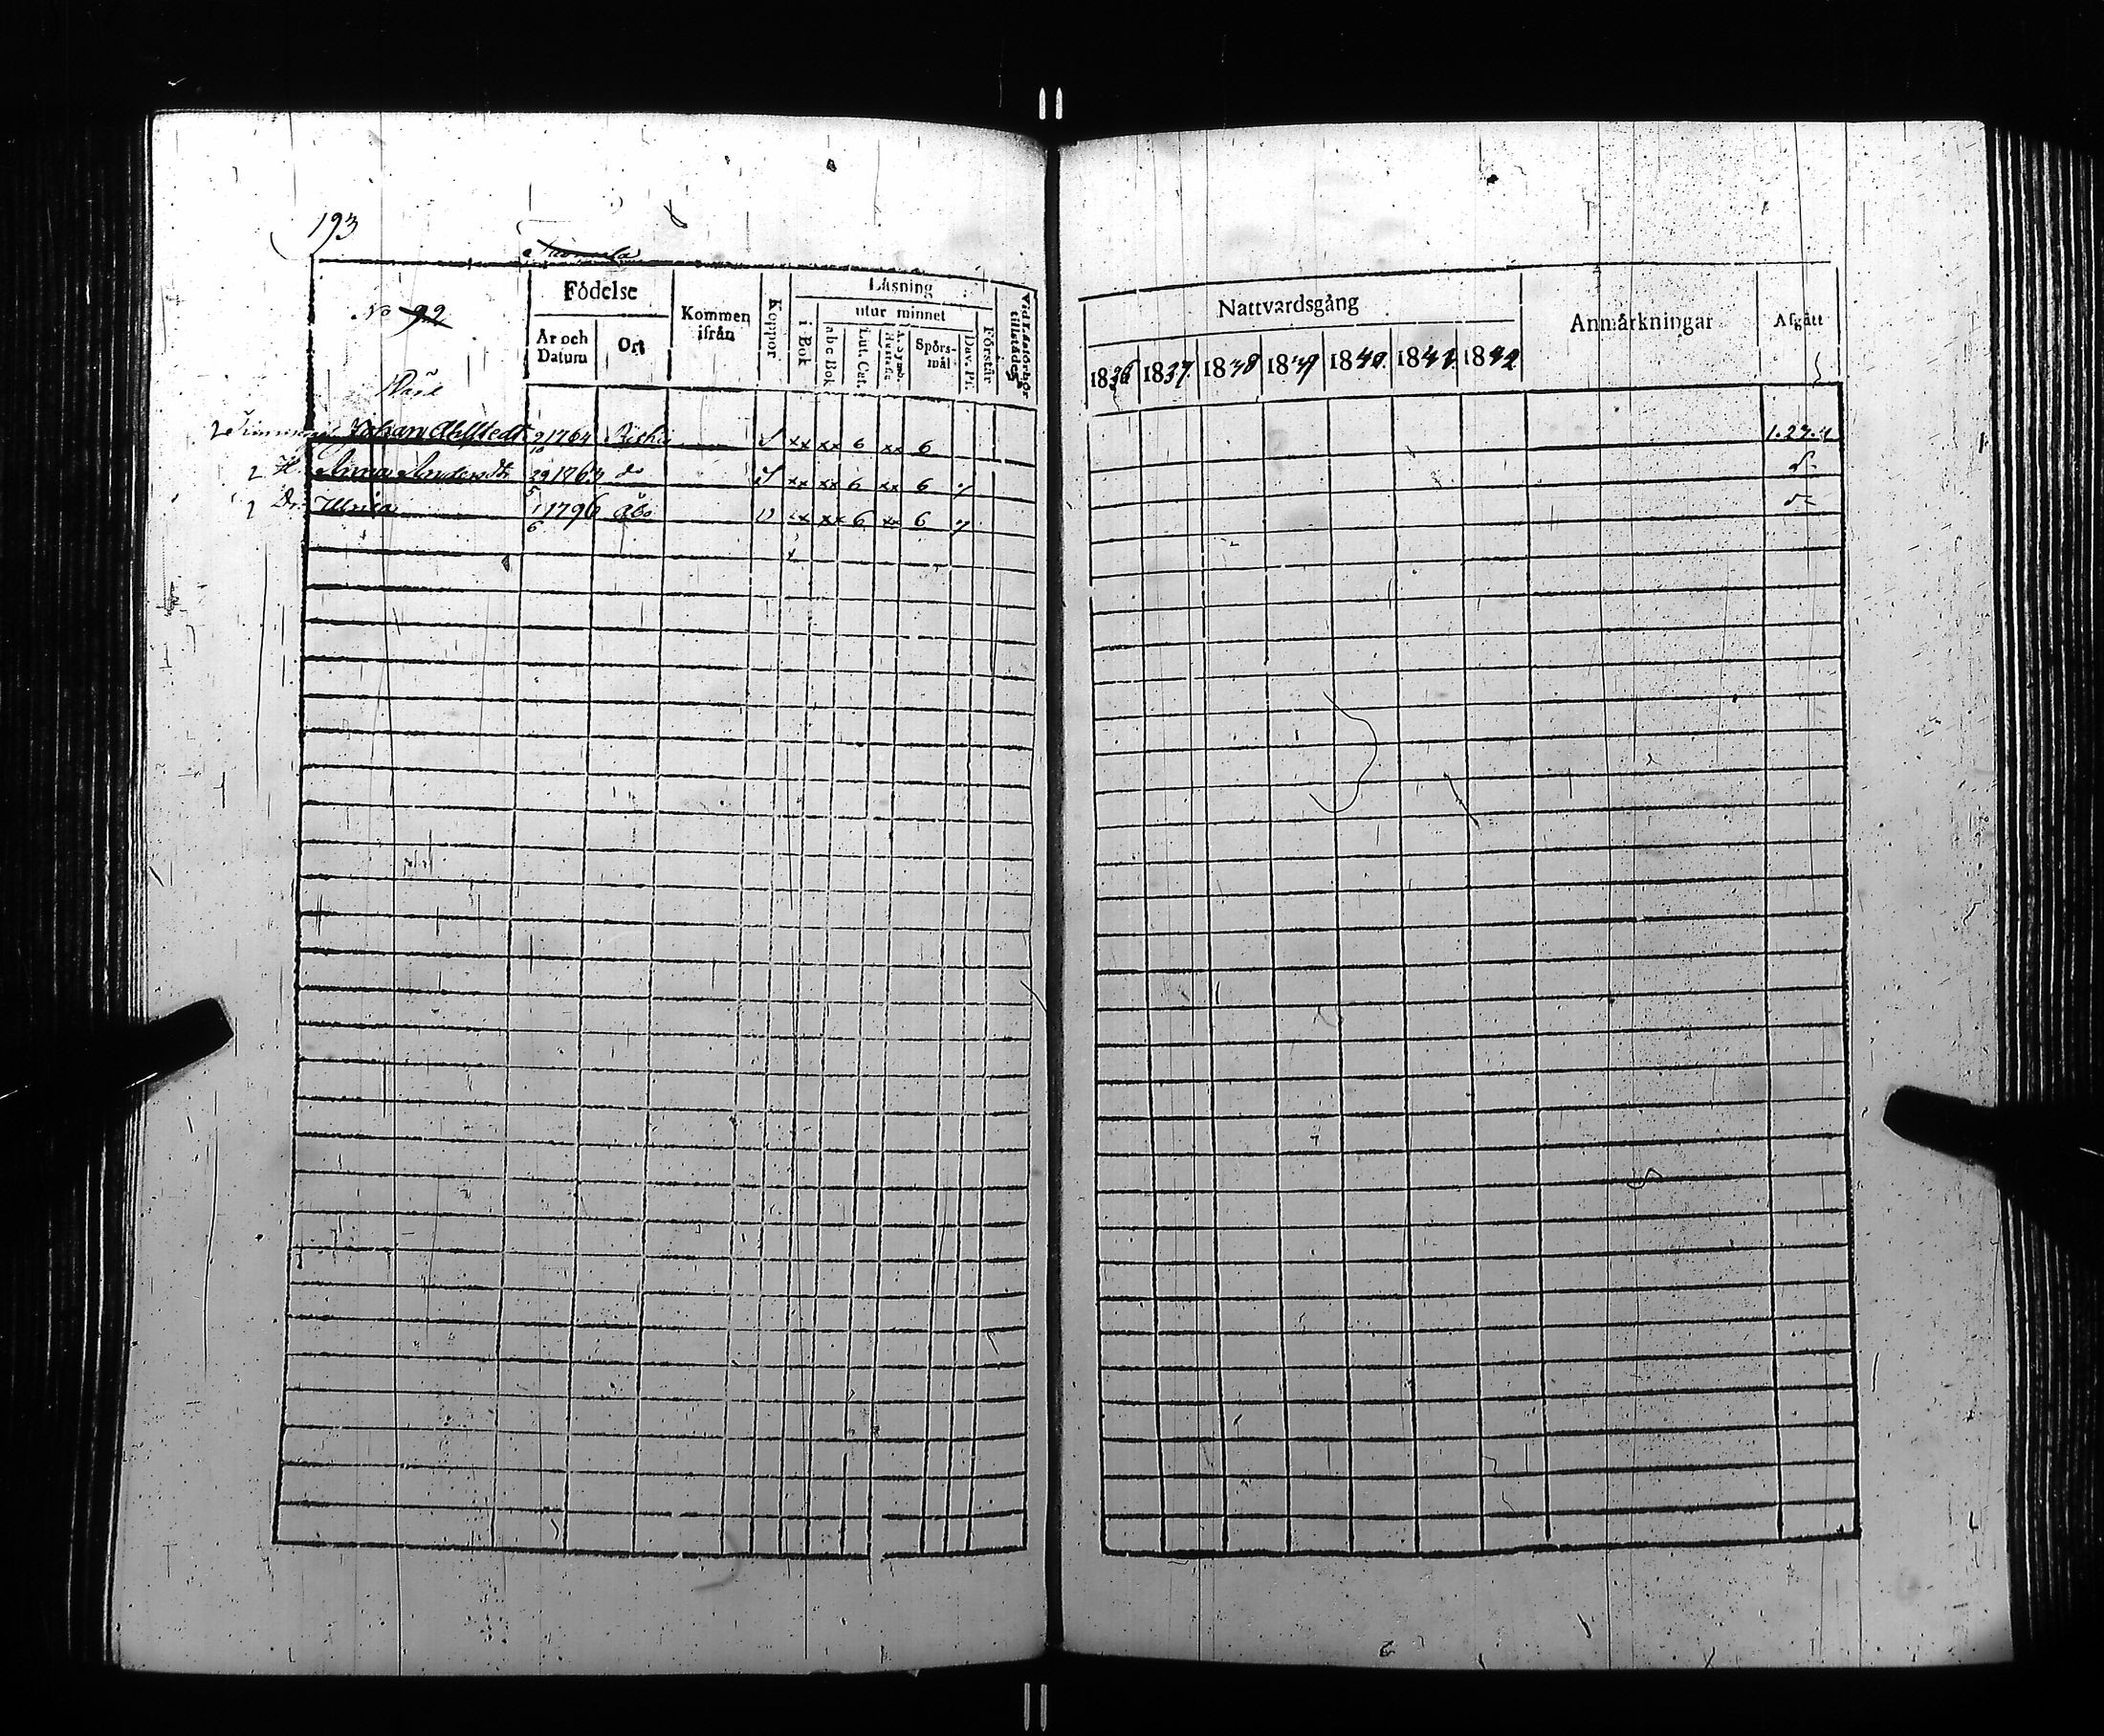 193
No 92
Födelse
Kommen ifrån
Koppor
Läsning
utur minnet
Vid Läsförhör tillstädes
År och Datum
Ort
i Bok
abc Bok
Lut. Cat.
A. Symb. Hustafl.
Spörsmål
Dav. Ps.
Förstår
Nattvardsgång
Anmärkningar
Afgått
1836 1837. 1838 1839 1840. 1841. 1842.
Johan Ahlstedt 2 1764 xx xx 6 xx 6 1.27.
10
2 H. Anna 29 176 do xx xx 6 xx 6
5
Dr. Ulrica 1 1796 Åbo xx xx 6 xx 6
6